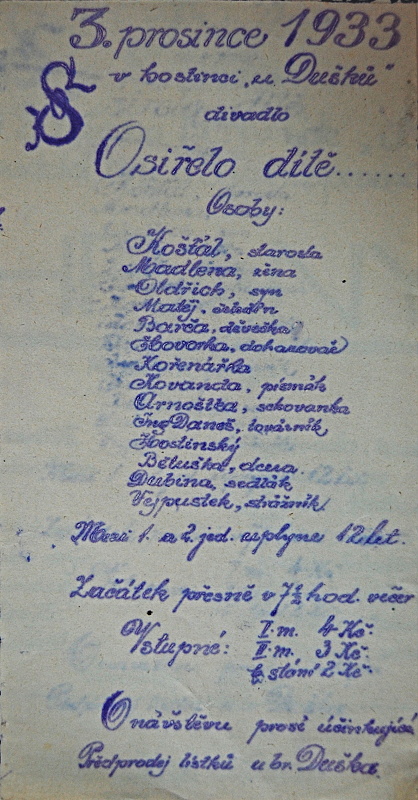 3. prosince 1933
v hostinci „u Dušků"
divadlo
Osiřelo dítě......
Osoby:
Košťál, starosta
Madlena, žena
Oldřich, syn
Matěj, čeledín
Barča, děvečka
Hovorka, dohazovač
Kořenářka
Kovanda, písmák
Arnoštka, schovanka
Ing Daneš, továrník
Hostinský
Běluška, dcera
Dubina, sedlák
Vejpustek, strážník
Mezi 1. a 2. jed. uplyne 12 let.
Začátek přesně v 7½ hod. večer
Vstupné: I. m. 4 Kč.
II. m. 3 Kč.
k stání 2 Kč.
O návštěvu prosí účinkující
Předprodej lístků u br. Duška.